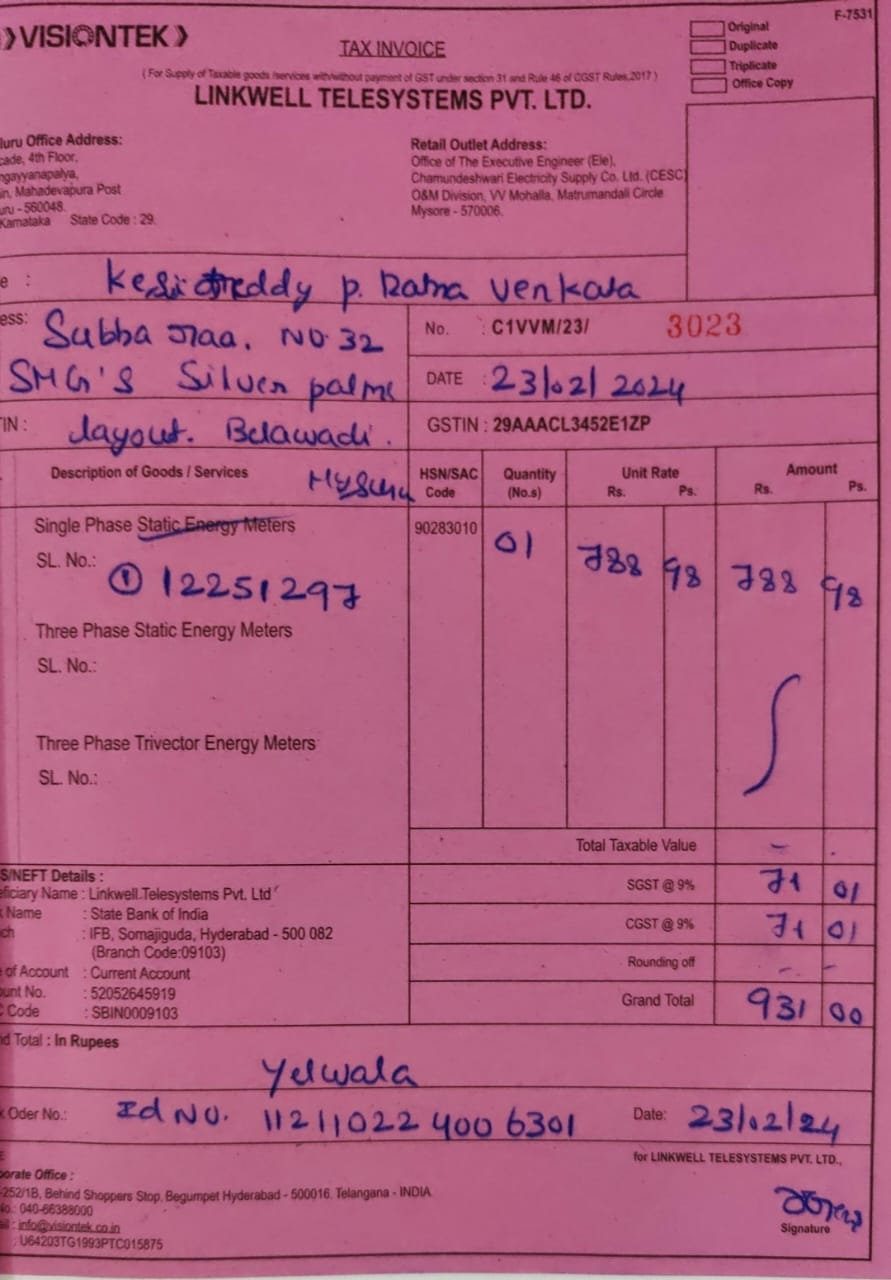 F-7531
VISIONTEK
TAX INVOICE
(For Supply of Taxable goods /services with/without payment of GST under section 31 and Rule 46 of CGST Rules,2017)
LINKWELL TELESYSTEMS PVT. LTD.
Original
Duplicate
Triplicate
Office Copy
luru Office Address:
cade, 4th Floor,
ngayyanapalya,
in, Mahadevapura Post
uru - 560048.
Karnataka State Code : 29.
Retail Outlet Address:
Office of The Executive Engineer (Ele),
Chamundeshwari Electricity Supply Co. Ltd. (CESC)
O&M Division, VV Mohalla, Matrumandali Circle
Mysore - 570006.
e : Kesireddy P. Ratna Venkata
ess: Subba Raa. NO 32
SMG'S Silver palms
IN : layout. Belawadi.
Mysuru
No. : C1VVM/23/ 3023
DATE : 23/02/2024
GSTIN : 29AAACL3452E1ZP
Description of Goods / Services HSN/SAC Code Quantity (No.s) Unit Rate Rs. Ps. Amount Rs. Ps.
Single Phase Static Energy Meters 90283010 01 788 98 788 98
SL. No.:
① 12251297
Three Phase Static Energy Meters
SL. No.:
Three Phase Trivector Energy Meters
SL. No.:
Total Taxable Value -
SGST @ 9% 71 01
CGST @ 9% 71 01
Rounding off - -
Grand Total 931 00
S/NEFT Details :
eficiary Name : Linkwell Telesystems Pvt. Ltd
k Name : State Bank of India
ch : IFB, Somajiguda, Hyderabad - 500 082
(Branch Code:09103)
e of Account : Current Account
ount No. : 52052645919
C Code : SBIN0009103
nd Total : In Rupees
Yelwala
k Oder No.: Id NO. 11211022 400 6301 Date: 23/02/24
for LINKWELL TELESYSTEMS PVT. LTD.,
porate Office :
-252/1B, Behind Shoppers Stop, Begumpet Hyderabad - 500016. Telangana - INDIA
No.: 040-66388000
ail : info@visiontek.co.in
: U64203TG1993PTC015875
Signature